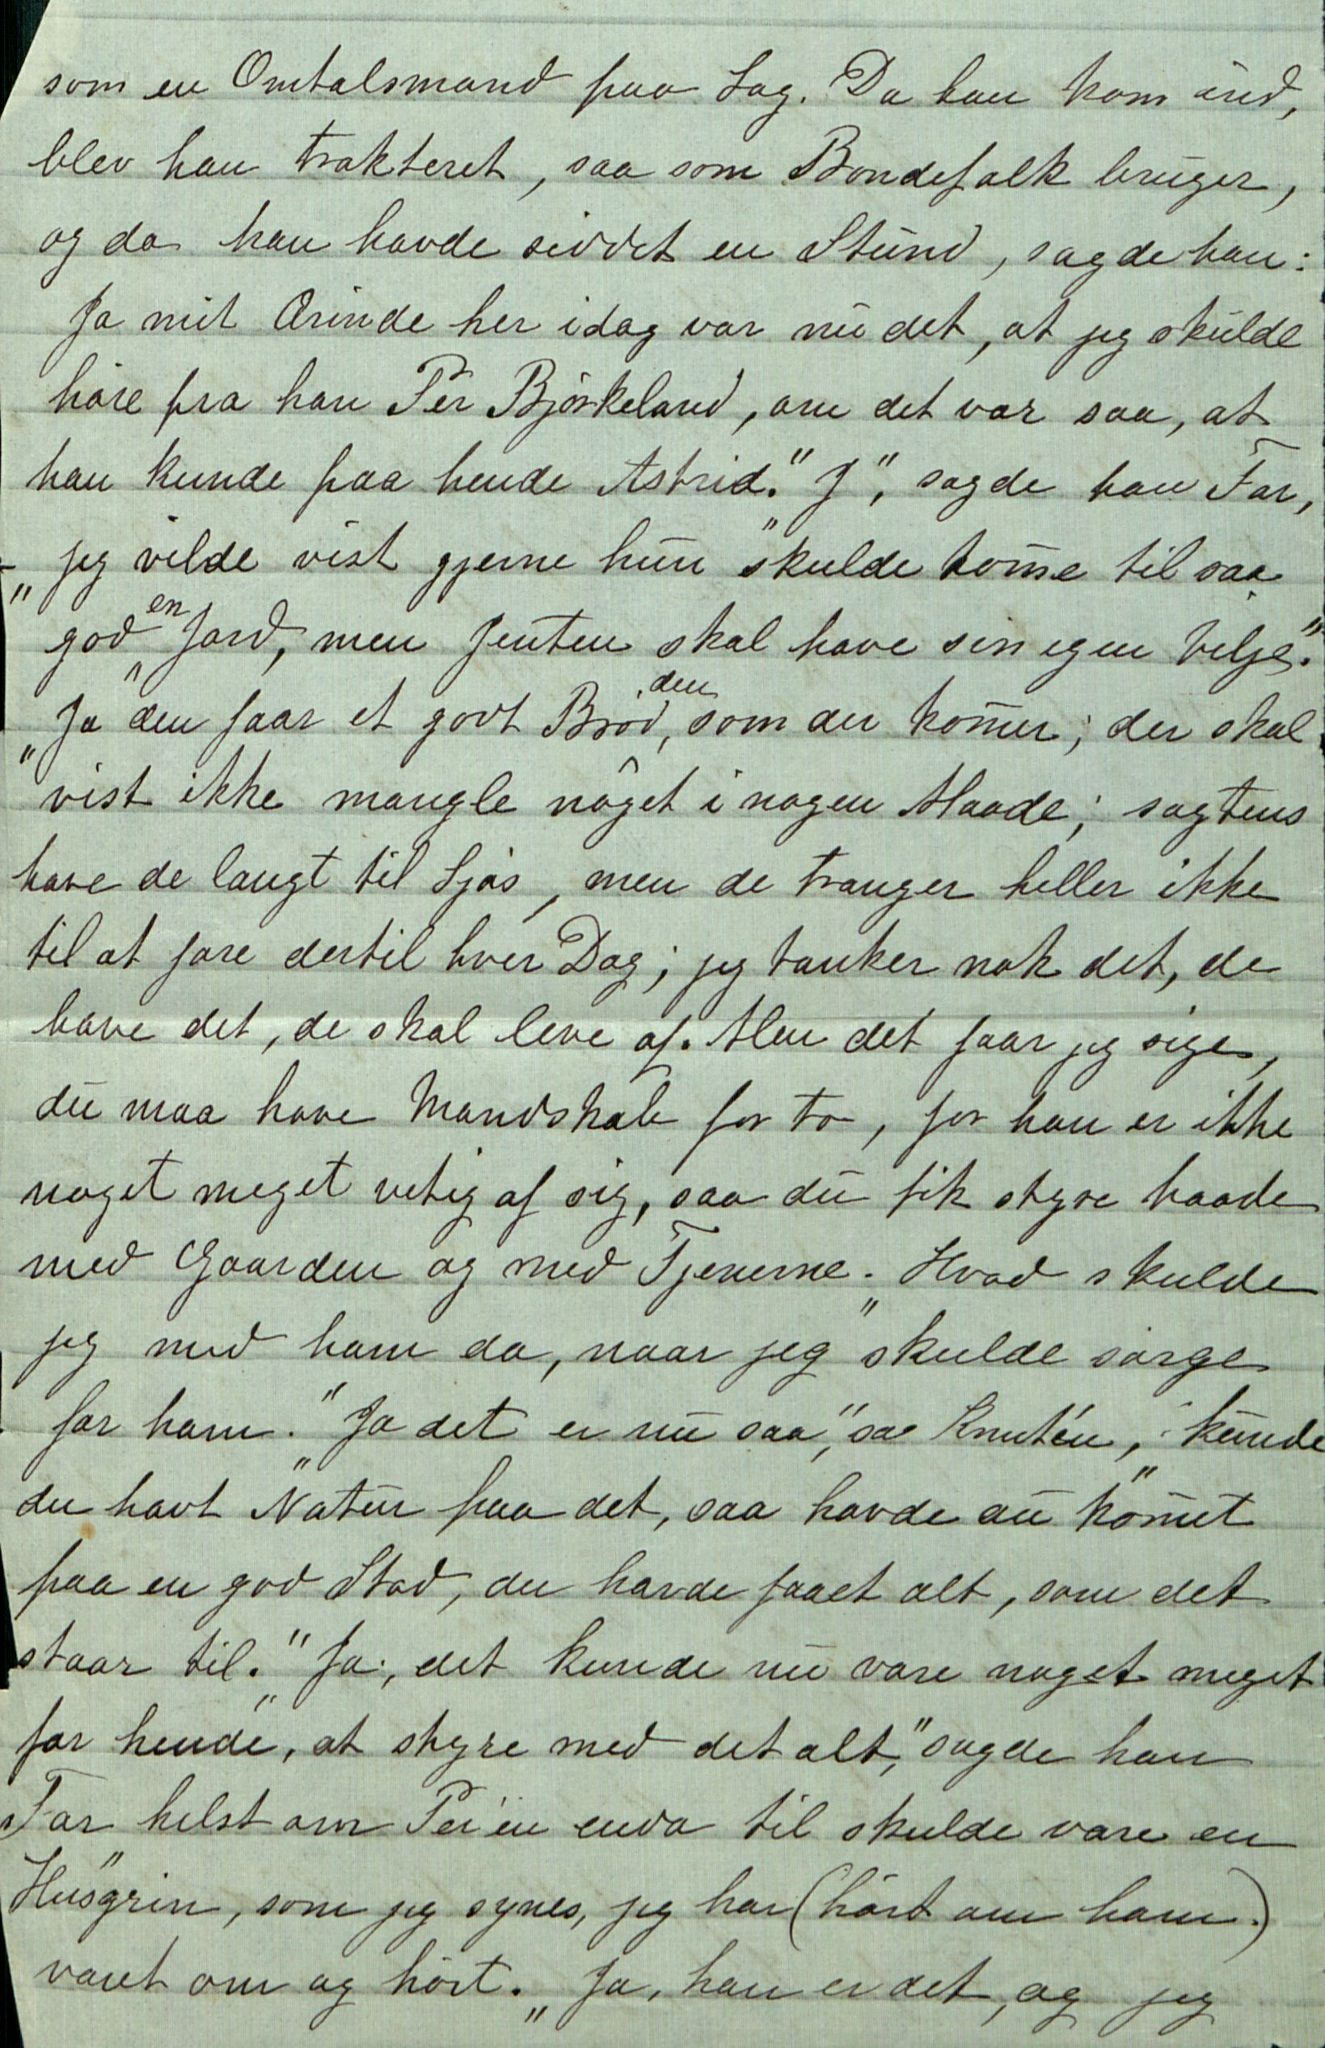 som en Omtalsmand paa Lag. Da han kom ind,
blev han trakteret, saa som Bondefolk bruger,
og da han havde siddet en Stund, sagde han:
Ja mit Ærinde her idag var nu det, at jeg skulde
høre fra han Per Bjørkeland, om det var saa, at
han kunde faa hende Astrid." "J", sagde han Far,
"jeg vilde vist gjerne hun skulde komme til saa
god en Jord, men Jenten skal have sin egen Vilje."
"Ja den faar et godt Brød, den som der kommer; der skal
vist ikke mangle noget i nogen Maade; sagtens
have de langt til Sjøs, men de trænger heller ikke
til at fare dertil hver Dag; jeg tænker nok det, de
have det, de skal leve af. Men det faar jeg sige,
du maa have Mandskab for to, for han er ikke
noget meget vetig af sig, saa du fik styre baade
med Gaarden og med Tjenerne. "Hvad skulde
jeg med ham da, naar jeg skulde sørge
for ham." "Ja det er nu saa," sa Knut'en, "kunde
du havt Natur paa det, saa havde du kommet
paa en god Stad, du havde faaet alt, som det
staar til." "Ja, det kunde nu være noget meget
for hende, at styre med det alt," sagde han
Far "helst om Per'en enda til skulde være en
Husgrin, som jeg synes, jeg har (hørt om ham.)
været om og hørt. "Ja, han er det, og jeg